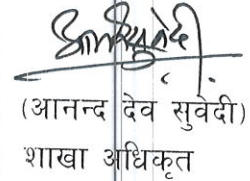 (आनन्द देव सुवेदी)
शाखा अधिकृत